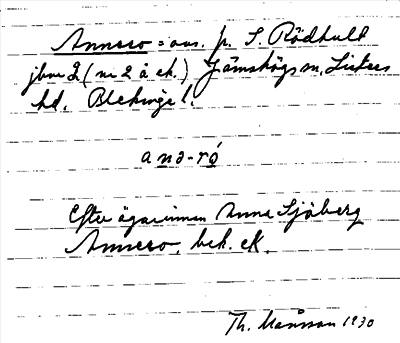 Annero = avs. på S. Rödhult
jbnr 2 (nr 2 å ek.) Jämshögs sn, Listers
hd. Blekinge l.
anə-ró
Efter ägarinnan Anna Sjöberg
Annero, bek. ek.
Th. Månsson 1930